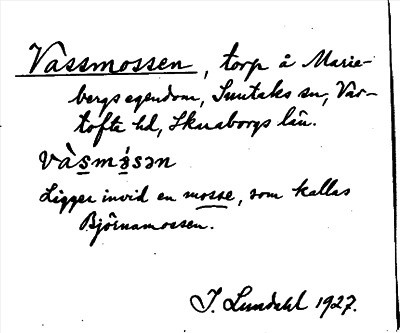 Vassmossen, torp å Marie-
bergs egendom, Suntaks sn, Var-
tofta hd, Skaraborgs län.
và̀s̲mɜ̀sən
Ligger invid en mosse, som kallas
Björnamossen.
J. Lundahl 1927.